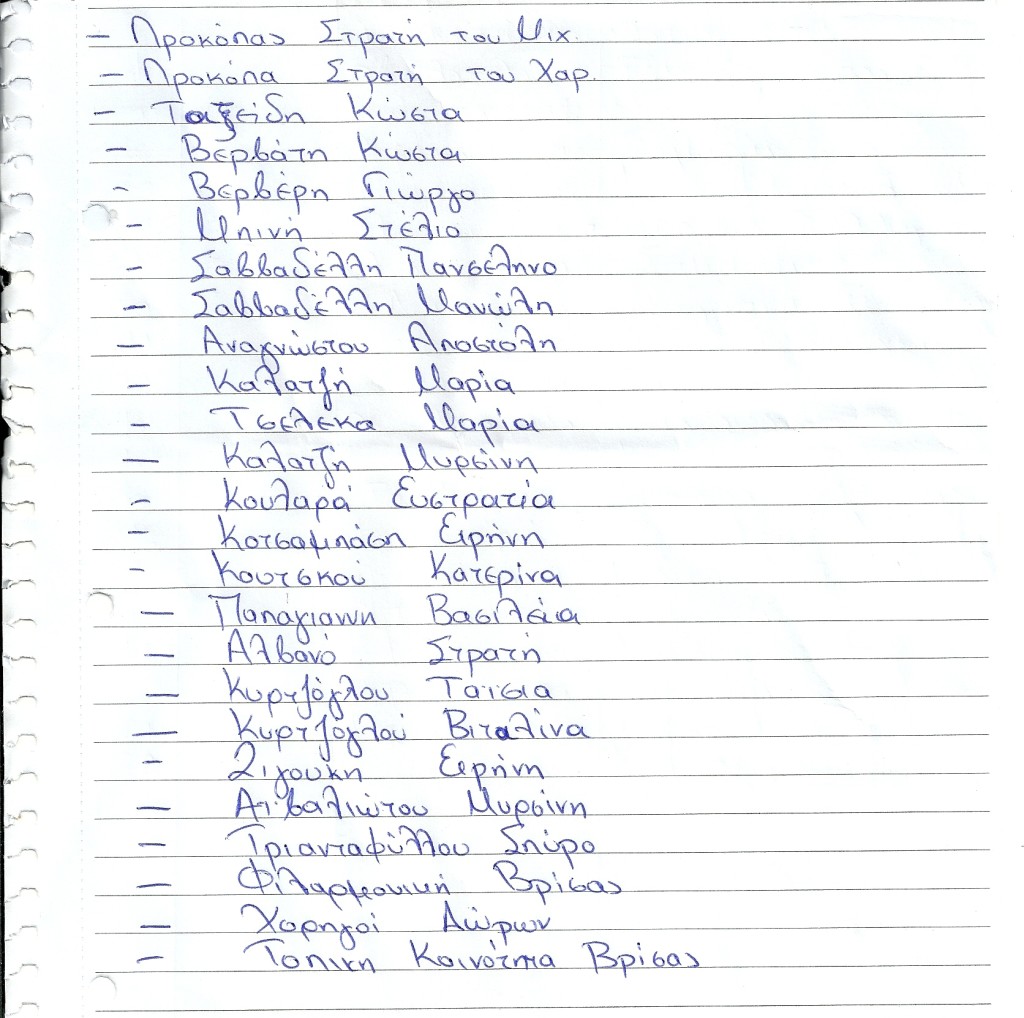 - Προκόπας Στρατή του Μιχ.
- Προκόπα Στρατή του Χαρ.
- Ταξείδη Κώστα
- Βερβάτη Κώστα
- Βερβέρη Γιώργο
- Μπινή Στέλιο
- Σαββαδέλλη Πανσέληνο
- Σαββαδέλλη Μανώλη
- Αναγνώστου Αποστόλη
- Καλατζή Μαρία
- Τσελεκα Μαρία
- Καλατζή Μυρσίνη
- Κουλαρά Ευστρατία
- Κοτσαμπάση Ειρήνη
- Κουτσκού Κατερίνα
- Παπάγιαννη Βασιλεία
- Αλβανό Στρατή
- Κυρτζόγλου Ταισια
- Κυρτζόγλού Βιταλίνα
- Ζιγούκη Ειρήνη
- Αϊβαλιώτου Μυρσίνη
- Τριανταφύλλου Σπύρο
- Φιλαρμονική Βρίσας
- Χορηγοί Δώρων
- Τοπικη Κοινότητα Βρίσας